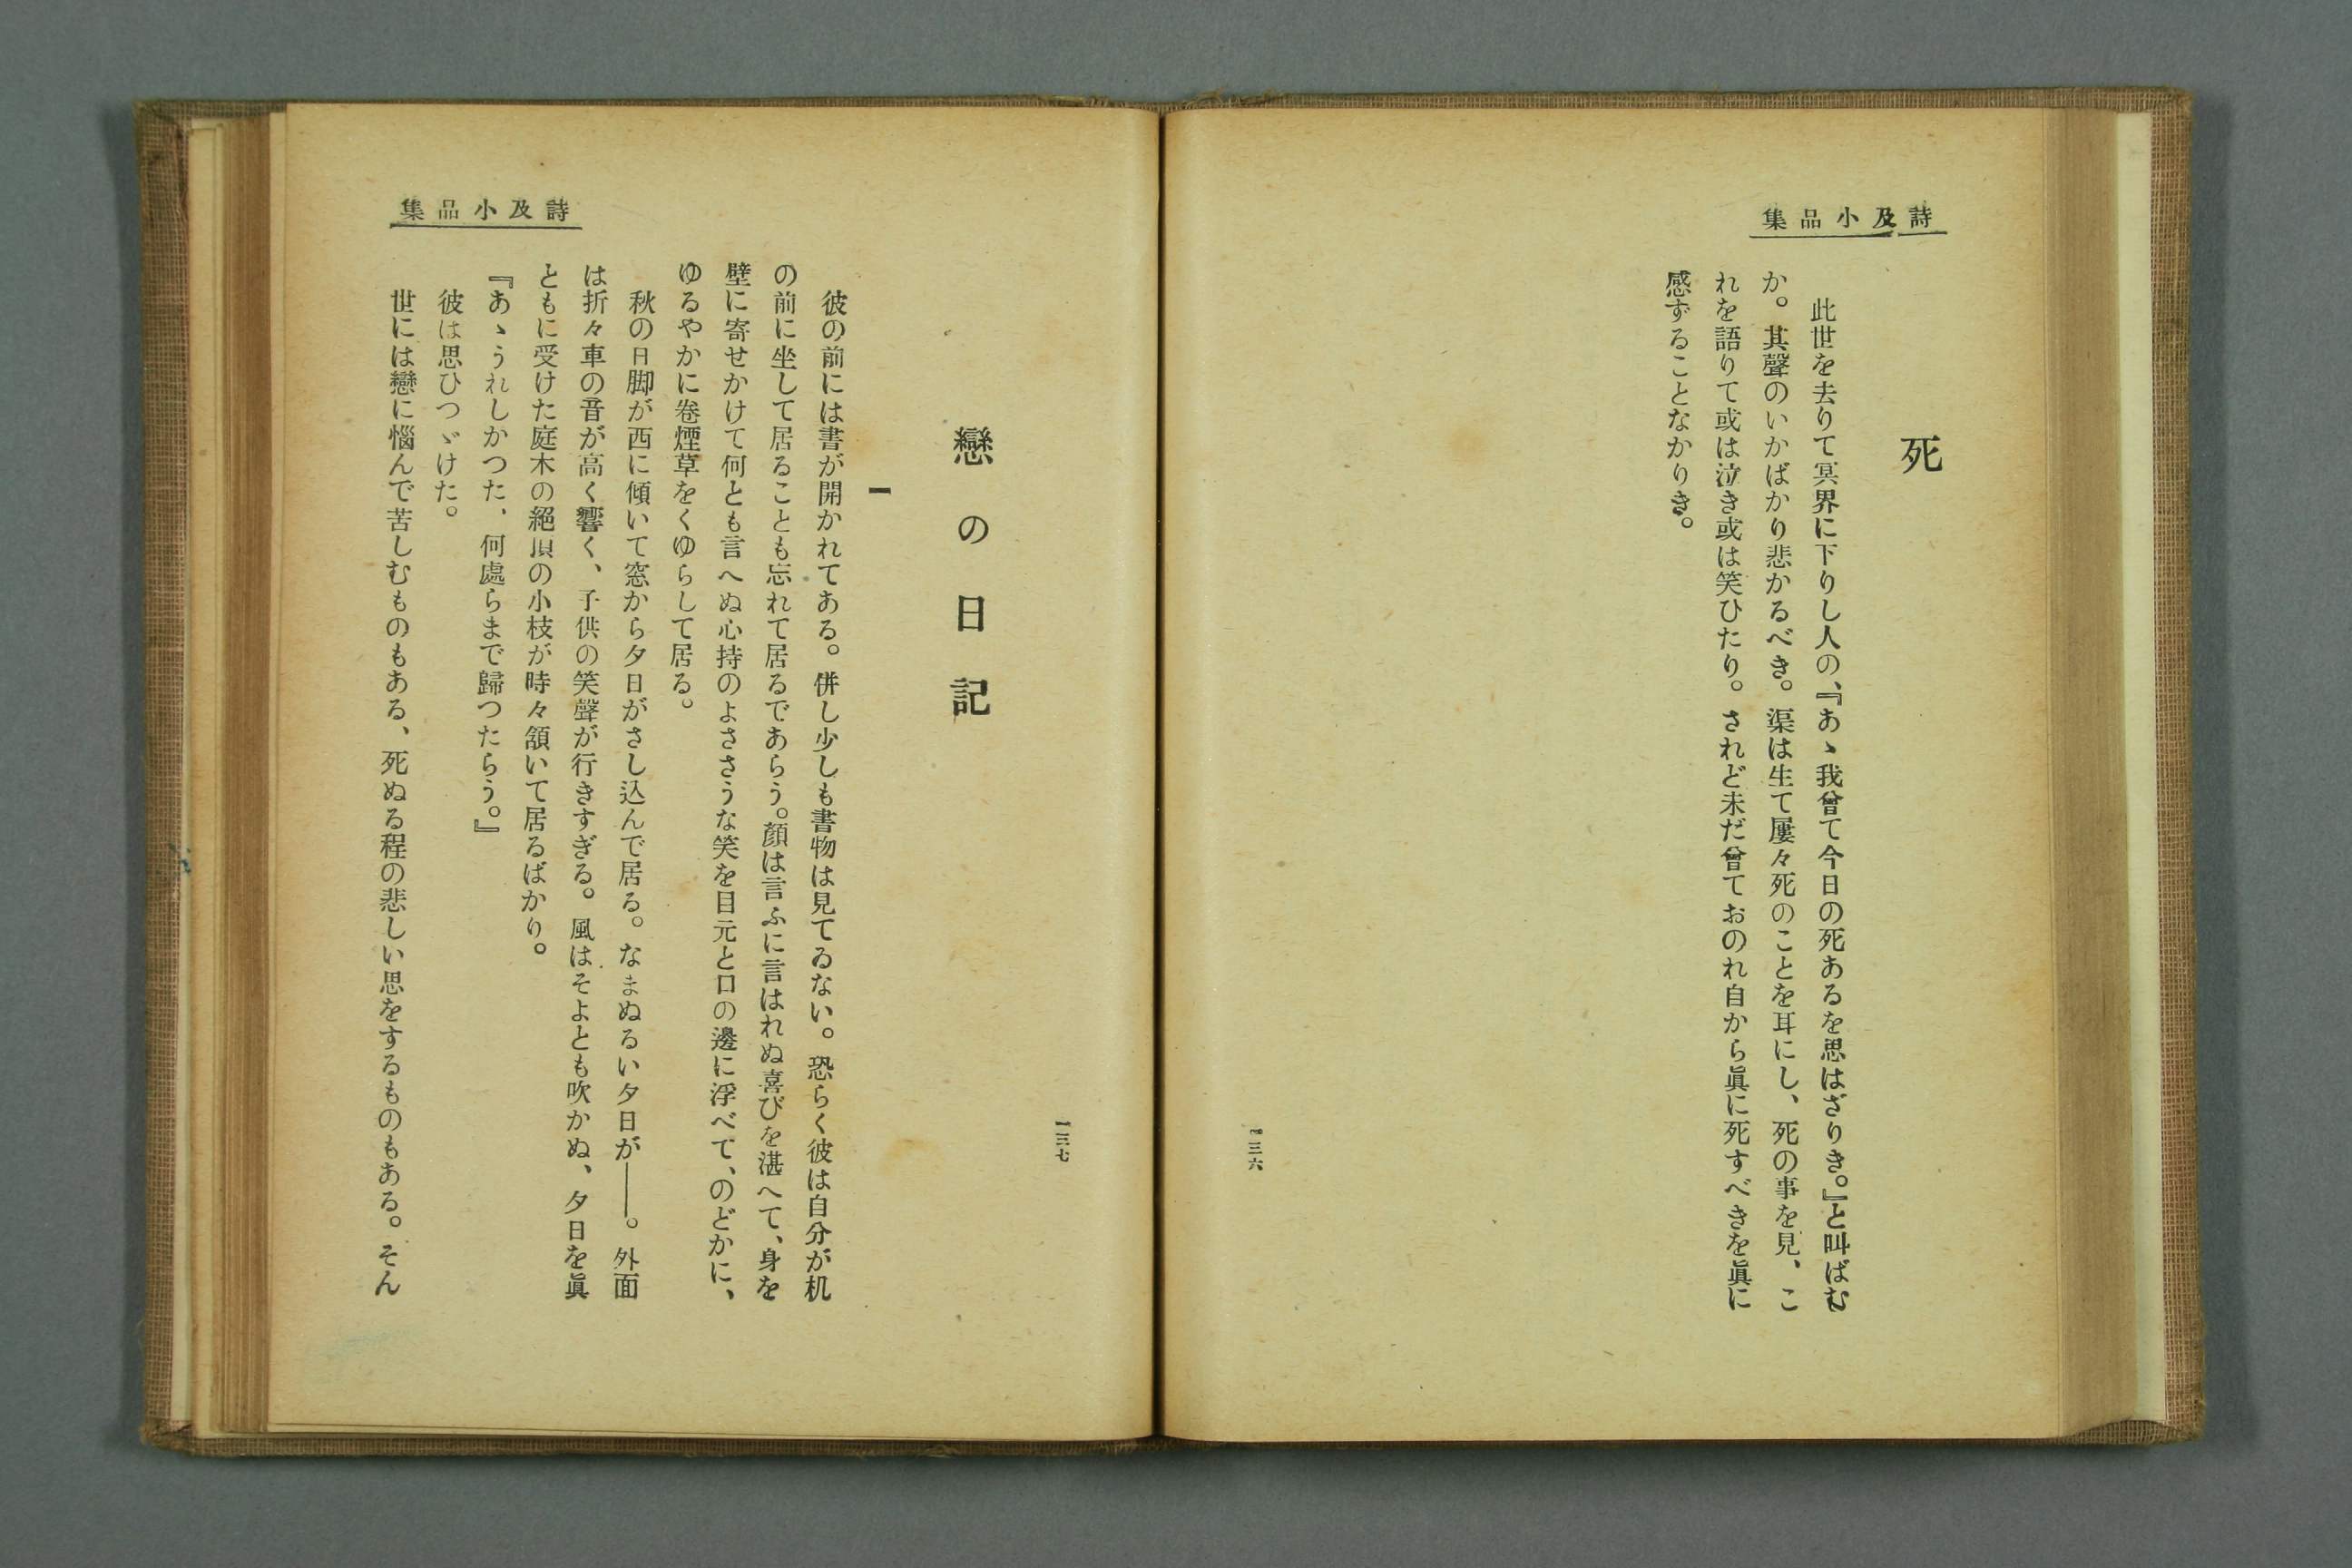 詩及小品集
死
此世を去りて冥界に下りし人の、『あゝ我曾て今日の死あるを思はざりき。』と叫ばむ
か。其聲のいかばかり悲かるべき。渠は生て屢々死のことを耳にし、死の事を見、こ
れを語りて或は泣き或は笑ひたり。されど未だ曾ておのれ自から眞に死すべきを眞に
感ずることなかりき。
一三六
詩及小品集
戀の日記
一
彼の前には書が開かれてある。併し少しも書物は見てゐない。恐らく彼は自分が机
の前に坐して居ることも忘れて居るであらう。顏は言ふに言はれぬ喜びを湛へて、身を
壁に寄せかけて何とも言へぬ心持のよささうな笑を目元と口の邊に浮べて、のどかに、
ゆるやかに卷煙草をくゆらして居る。
秋の日脚が西に傾いて窓から夕日がさし込んで居る。なまぬるい夕日が――。外面
は折々車の音が高く響く、子供の笑聲が行きすぎる。風はそよとも吹かぬ、夕日を眞
ともに受けた庭木の絕頂の小枝が時々頷いて居るばかり。
『あゝうれしかつた、何處らまで歸つたらう。』
彼は思ひつゞけた。
世には戀に惱んで苦しむものもある、死ぬる程の悲しい思をするものもある。そん
一三七